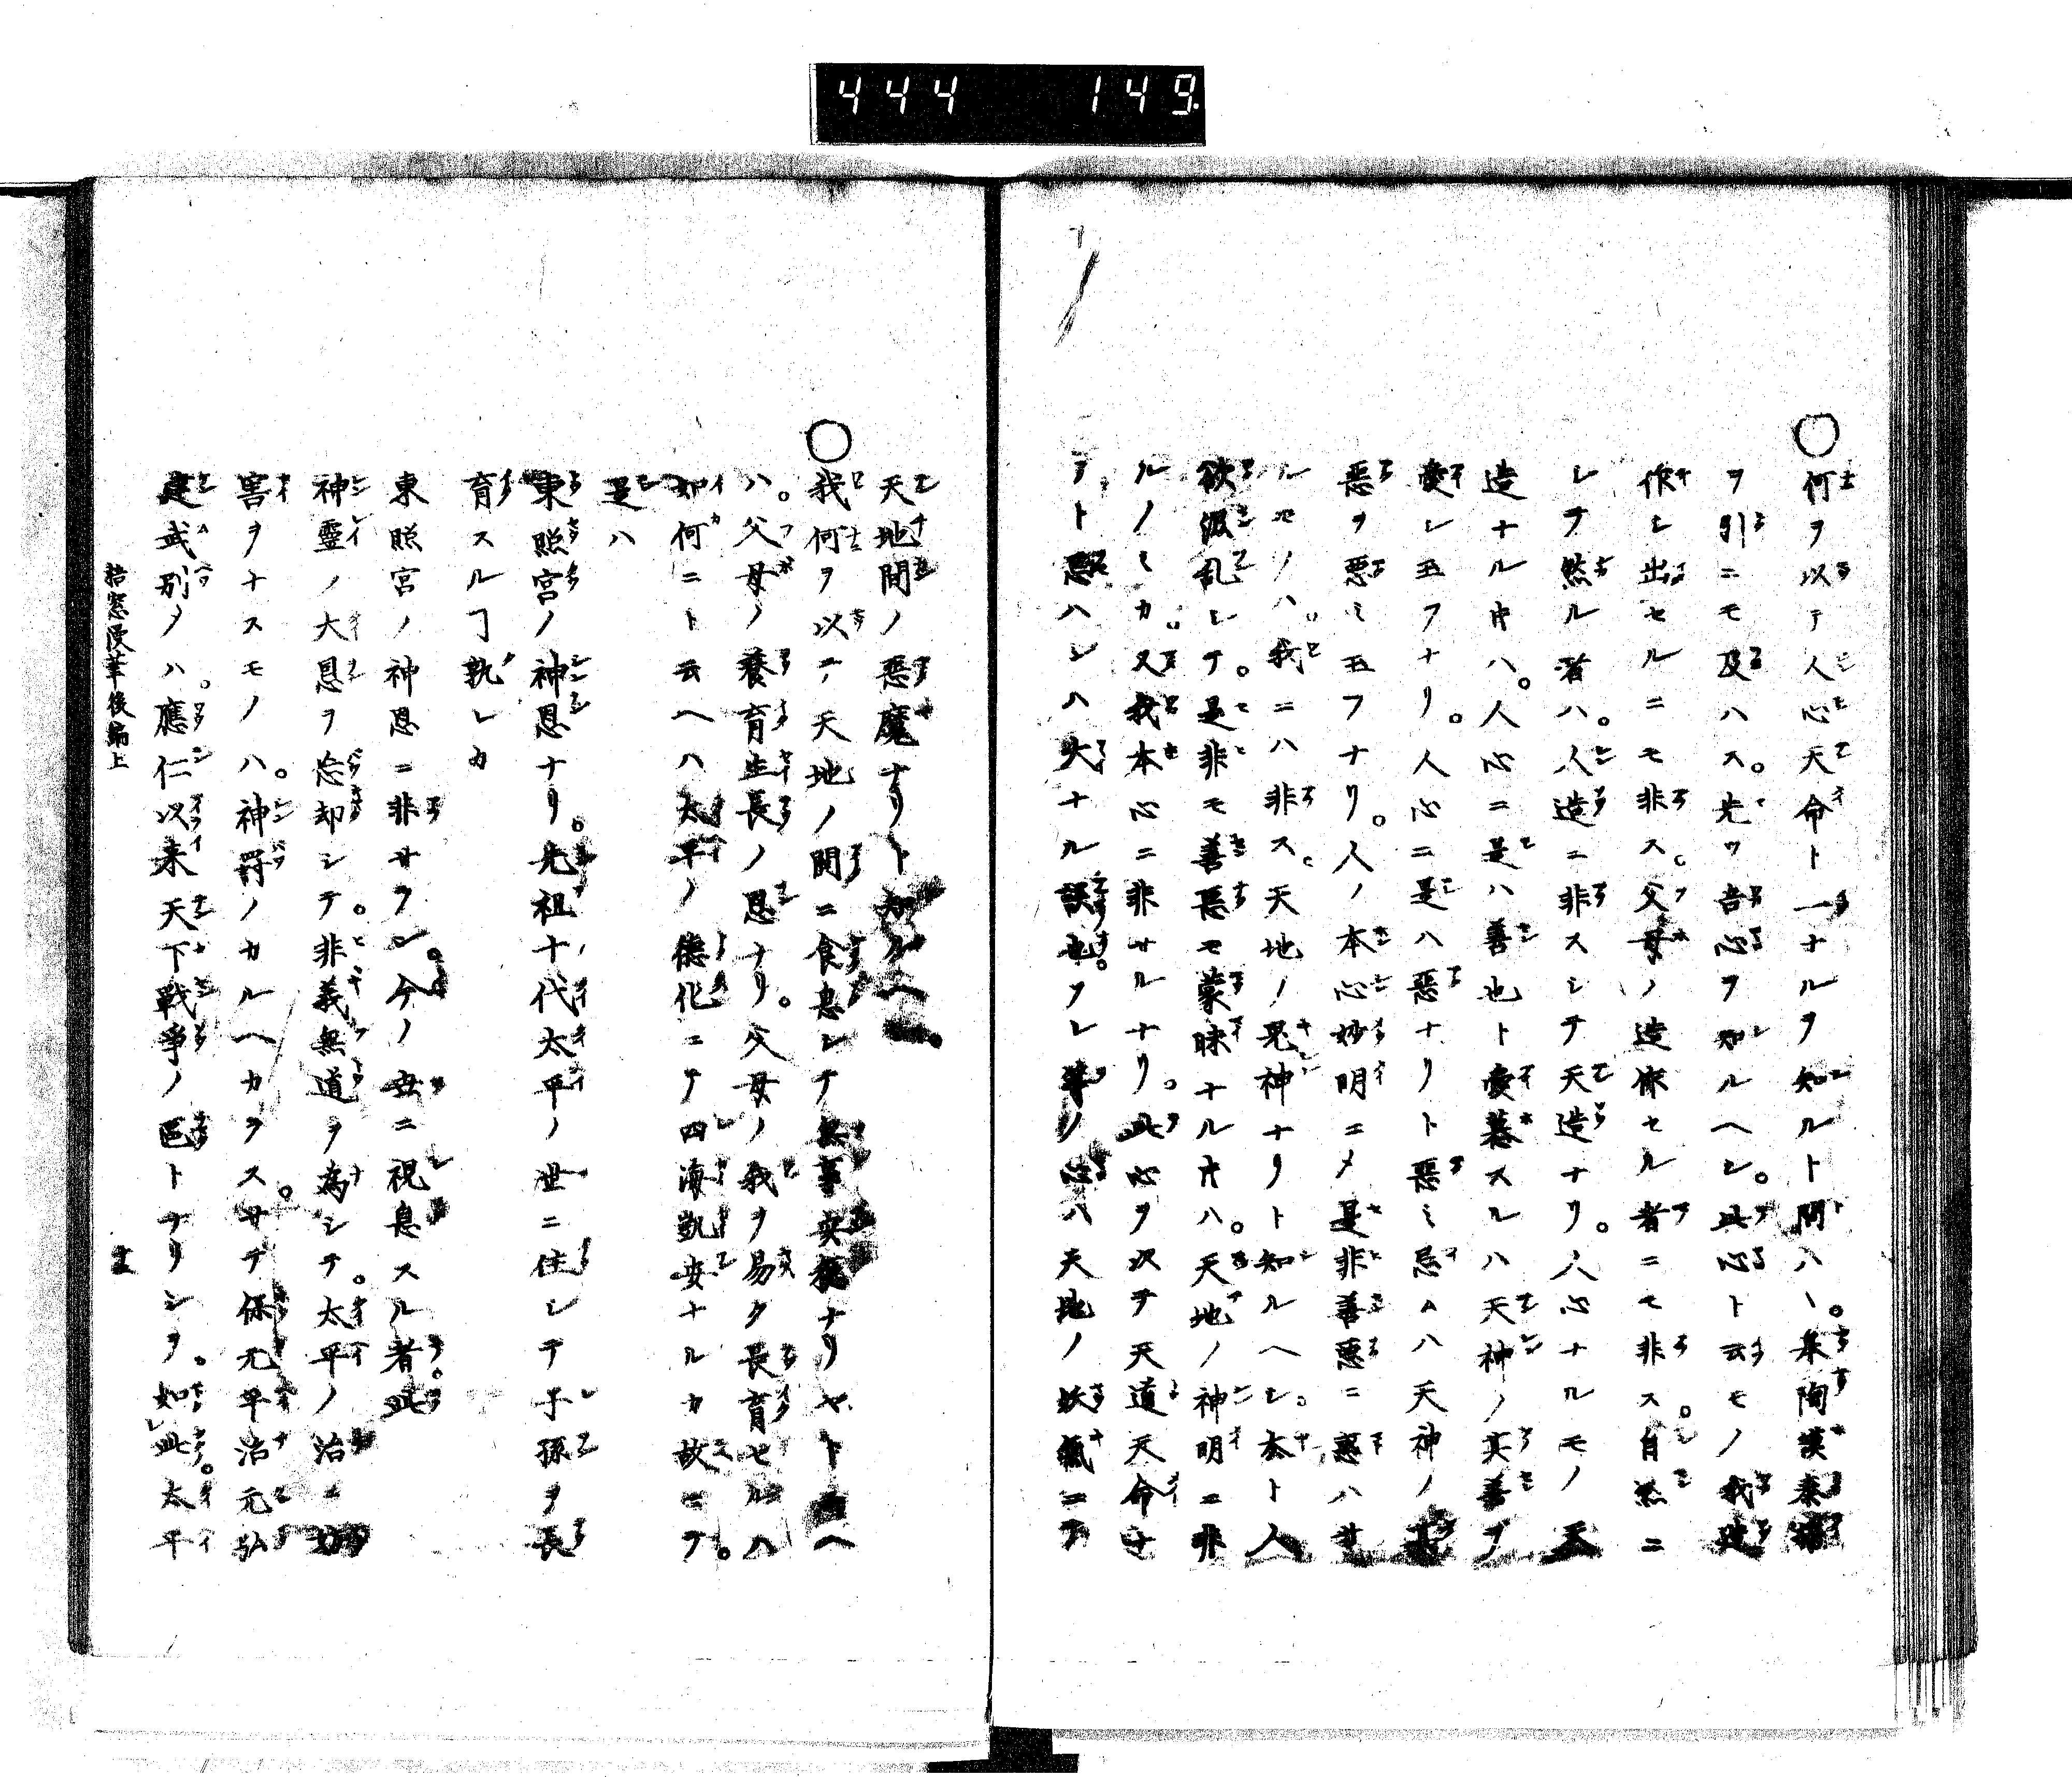 444 149
○何ヲ以テ人心天命ト一ナルヲ知ルト問ハヽ。皐陶謨泰誓
ヲ引ニモ及ハス。先ツ吾心ヲ知ルヘシ。此心ト云モノ我造
作シ出セルニモ非ス。父母ノ造作セル者ニモ非ス。自然ニ
シテ然ル者ハ。人造ニ非スシテ天造ナリ。人心ナルモノ天
造ナル片ハ。人心ニ是ハ善也ト愛慕スルハ天神ノ実善ヲ
愛シ玉フナリ。人心ニ是ハ惡ナリト惡ミ忌ムハ天神ノ
惡ヲ惡ミ玉フナリ。人ノ本心妙明ニメ是非善惡ニ惑ハサ
ルモノハ。我ニハ非ス。天地ノ鬼神ナリト知ルヘシ。本ト人
欲汲乱シテ。是非モ善惡モ蒙昧ナル片ハ。天地ノ神明ニ非
ルノミカ。又我本心ニ非サルナリ。此心ヲ以テ天道天命ナ
リト思ハシハ大ナル誤也。ソレ等ノ心ハ天地ノ妖氣ニテ
天地間ノ惡魔ナリト知ルヘ
○我何ヲ以テ天地ノ間ニ食息シテ無事安穏ナリヤトヘ
ハ。父母ノ養育生長ノ恩ナリ。父母ノ我ヲ易ク長育セルハ
如何ニト云ヘハ太平ノ德化ニテ四海凱安ナルカ故ニテ。
是ハ
東照宮ノ神恩ナリ。先祖十代太平ノ世ニ住シテ子孫ヲ長
育スルヿ孰レカ
東照宮ノ神恩ニ非サラン。今ノ世ニ視息スル者。此
神靈ノ大恩ヲ忘却シテ。非義無道ヲ為シテ。太平ノ治ニ妨
害ヲナスモノハ。神罸ノカルヘカラス。サテ保元平治元弘
建武別ノハ。應仁以来天下戰爭ノ區トナリシヲ。如此。太平
梧窓漫筆後編上